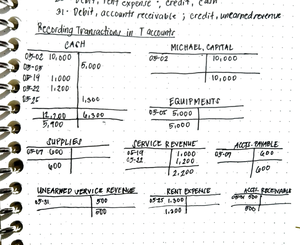 Debit, rent expense ; credit, cash
31 - Debit, accounts receivable ; credit, unearned revenue
Recording Transactions in T accounts
CASH
05-02 10,000
5,000
05-05
05-19 1,000
05-22 1,200
05-25 1,300
12,200 6,300
5,900
MICHAEL, CAPITAL
05-02 10,000
10,000
EQUIPMENTS
05-05 5,000
5,000
SUPPLIES
05-09 600
600
SERVICE REVENUE
05-19 1,000
05-22 1,200
2,200
ACCT. PAYABLE
05-09 600
600
UNEARNED SERVICE REVENUE
05-31 500
500
RENT EXPENSE
05-25 1,300
1,300
ACCT. RECEIVABLE
05-31 500
500